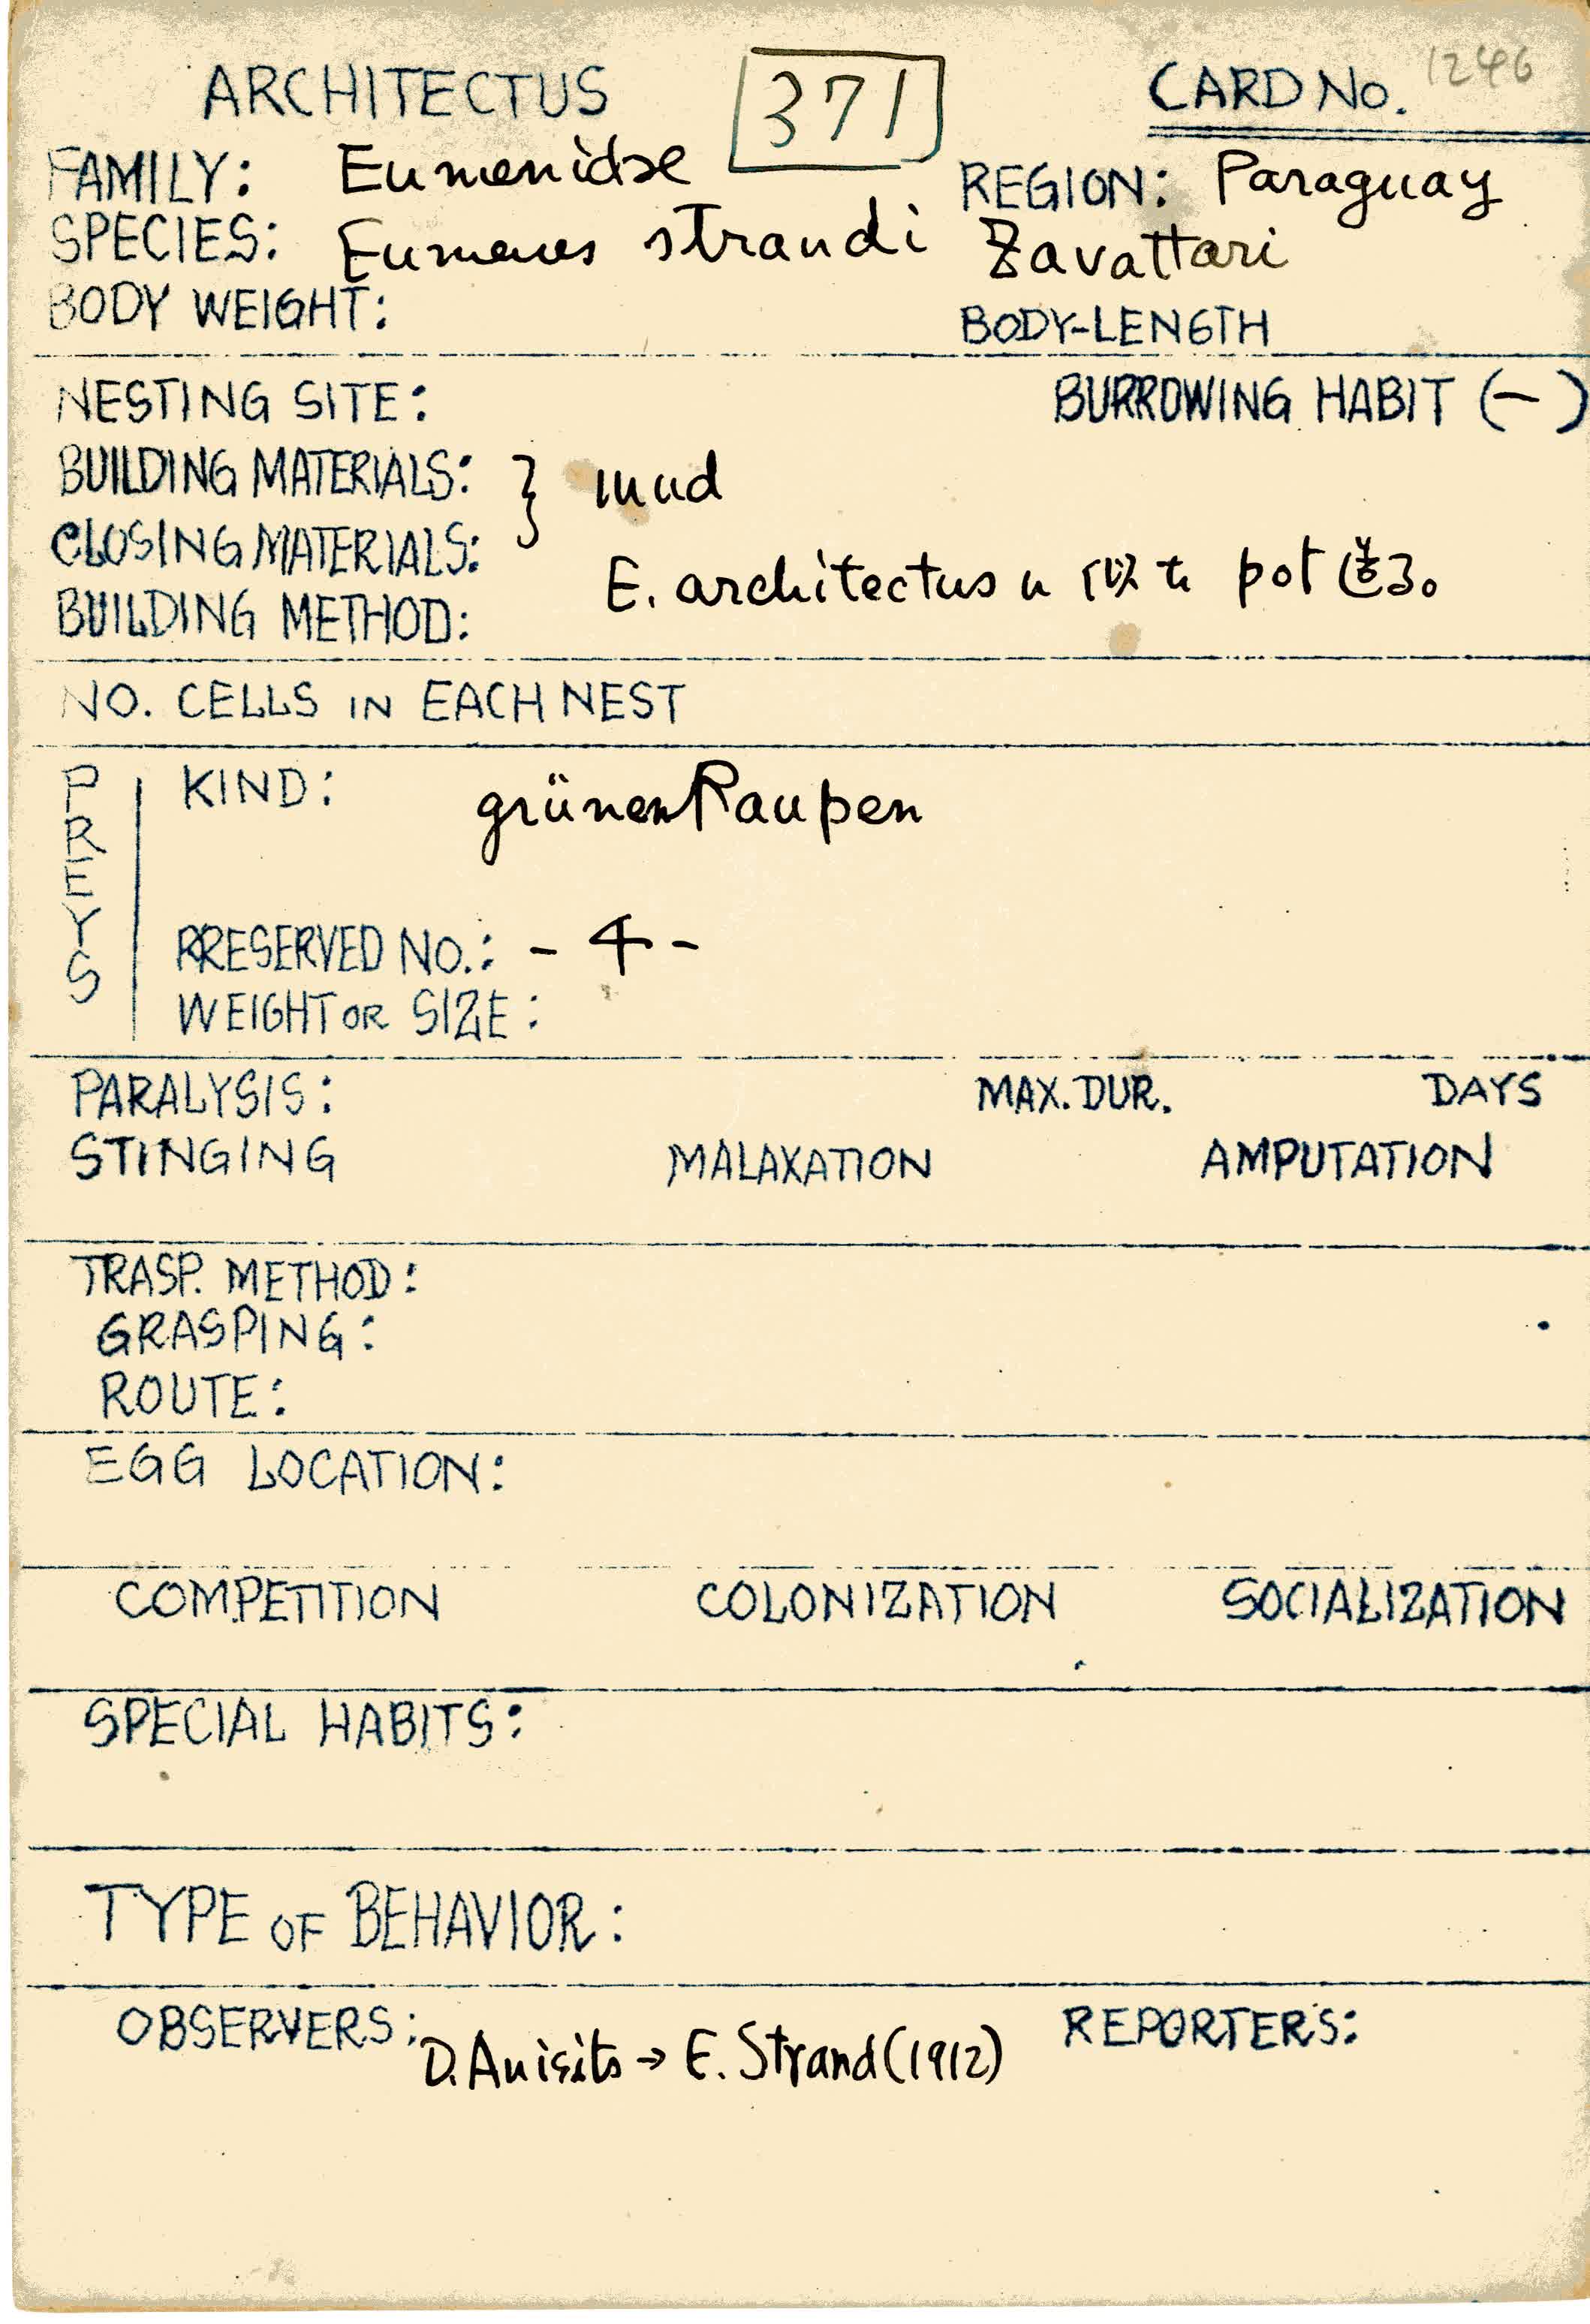 ARCHITECTUS 371 CARD No. 1246
FAMILY: Eumenidae REGION: Paraguay
SPECIES: Eumenes strandi Zavattari
BODY WEIGHT: BODY-LENGTH
NESTING SITE: BURROWING HABIT (-)
BUILDING MATERIALS: } mud
CLOSING MATERIALS:
BUILDING METHOD: E. architectus に似た pot 造る。
NO. CELLS IN EACH NEST
PREYS
KIND: grünen Raupen
PRESERVED NO.: - 4 -
WEIGHT OR SIZE:
PARALYSIS: MAX. DUR. DAYS
STINGING MALAXATION AMPUTATION
TRASP. METHOD:
GRASPING:
ROUTE:
EGG LOCATION:
COMPETITION COLONIZATION SOCIALIZATION
SPECIAL HABITS:
TYPE OF BEHAVIOR:
OBSERVERS: D. Anisits → E. Strand (1912) REPORTERS: